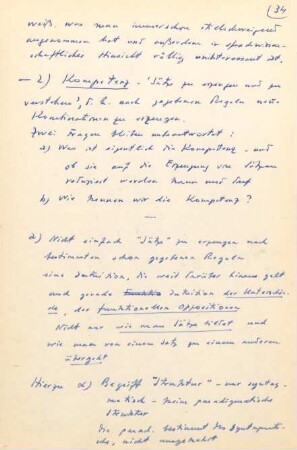 34
weiß, was man immer schon stillschweigend
angenommen hat und außerdem in sprachwissen-
schaftlicher Hinsicht völlig uninteressant ist.
— 2) Kompetenz - "Sätze zu erzeugen und zu
verstehen", d.h. nach gegebenen Regeln neue
Kombinationen zu erzeugen.
Zwei Fragen bleiben unbeantwortet:
a) Was ist eigentlich die Kompetenz - und
ob sie auf die Erzeugung von Sätzen
reduziert werden kann und darf
b) Wie kennen wir die Kompetenz?
—
a) Nicht einfach "Sätze" zu erzeugen nach
bestimmten schon gegebenen Regeln
eine Intuition, die weit darüber hinaus geht
und gerade Intuition der Unterschie-
de, der funktionellen Oppositionen
Nicht nur wie man Sätze bildet und
wie man von einem Satz zu einem anderen
übergeht
Hierzu α) Begriff "Struktur" - nur syntag-
matisch - keine paradigmatische
Struktur
die parad. bestimmt das Syntagmati-
sche, nicht umgekehrt